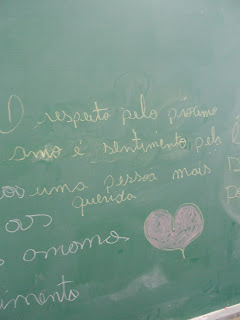 O respeito pelo próximo
amo é sentimento pela
uma pessoa mais
querida
as
amamos